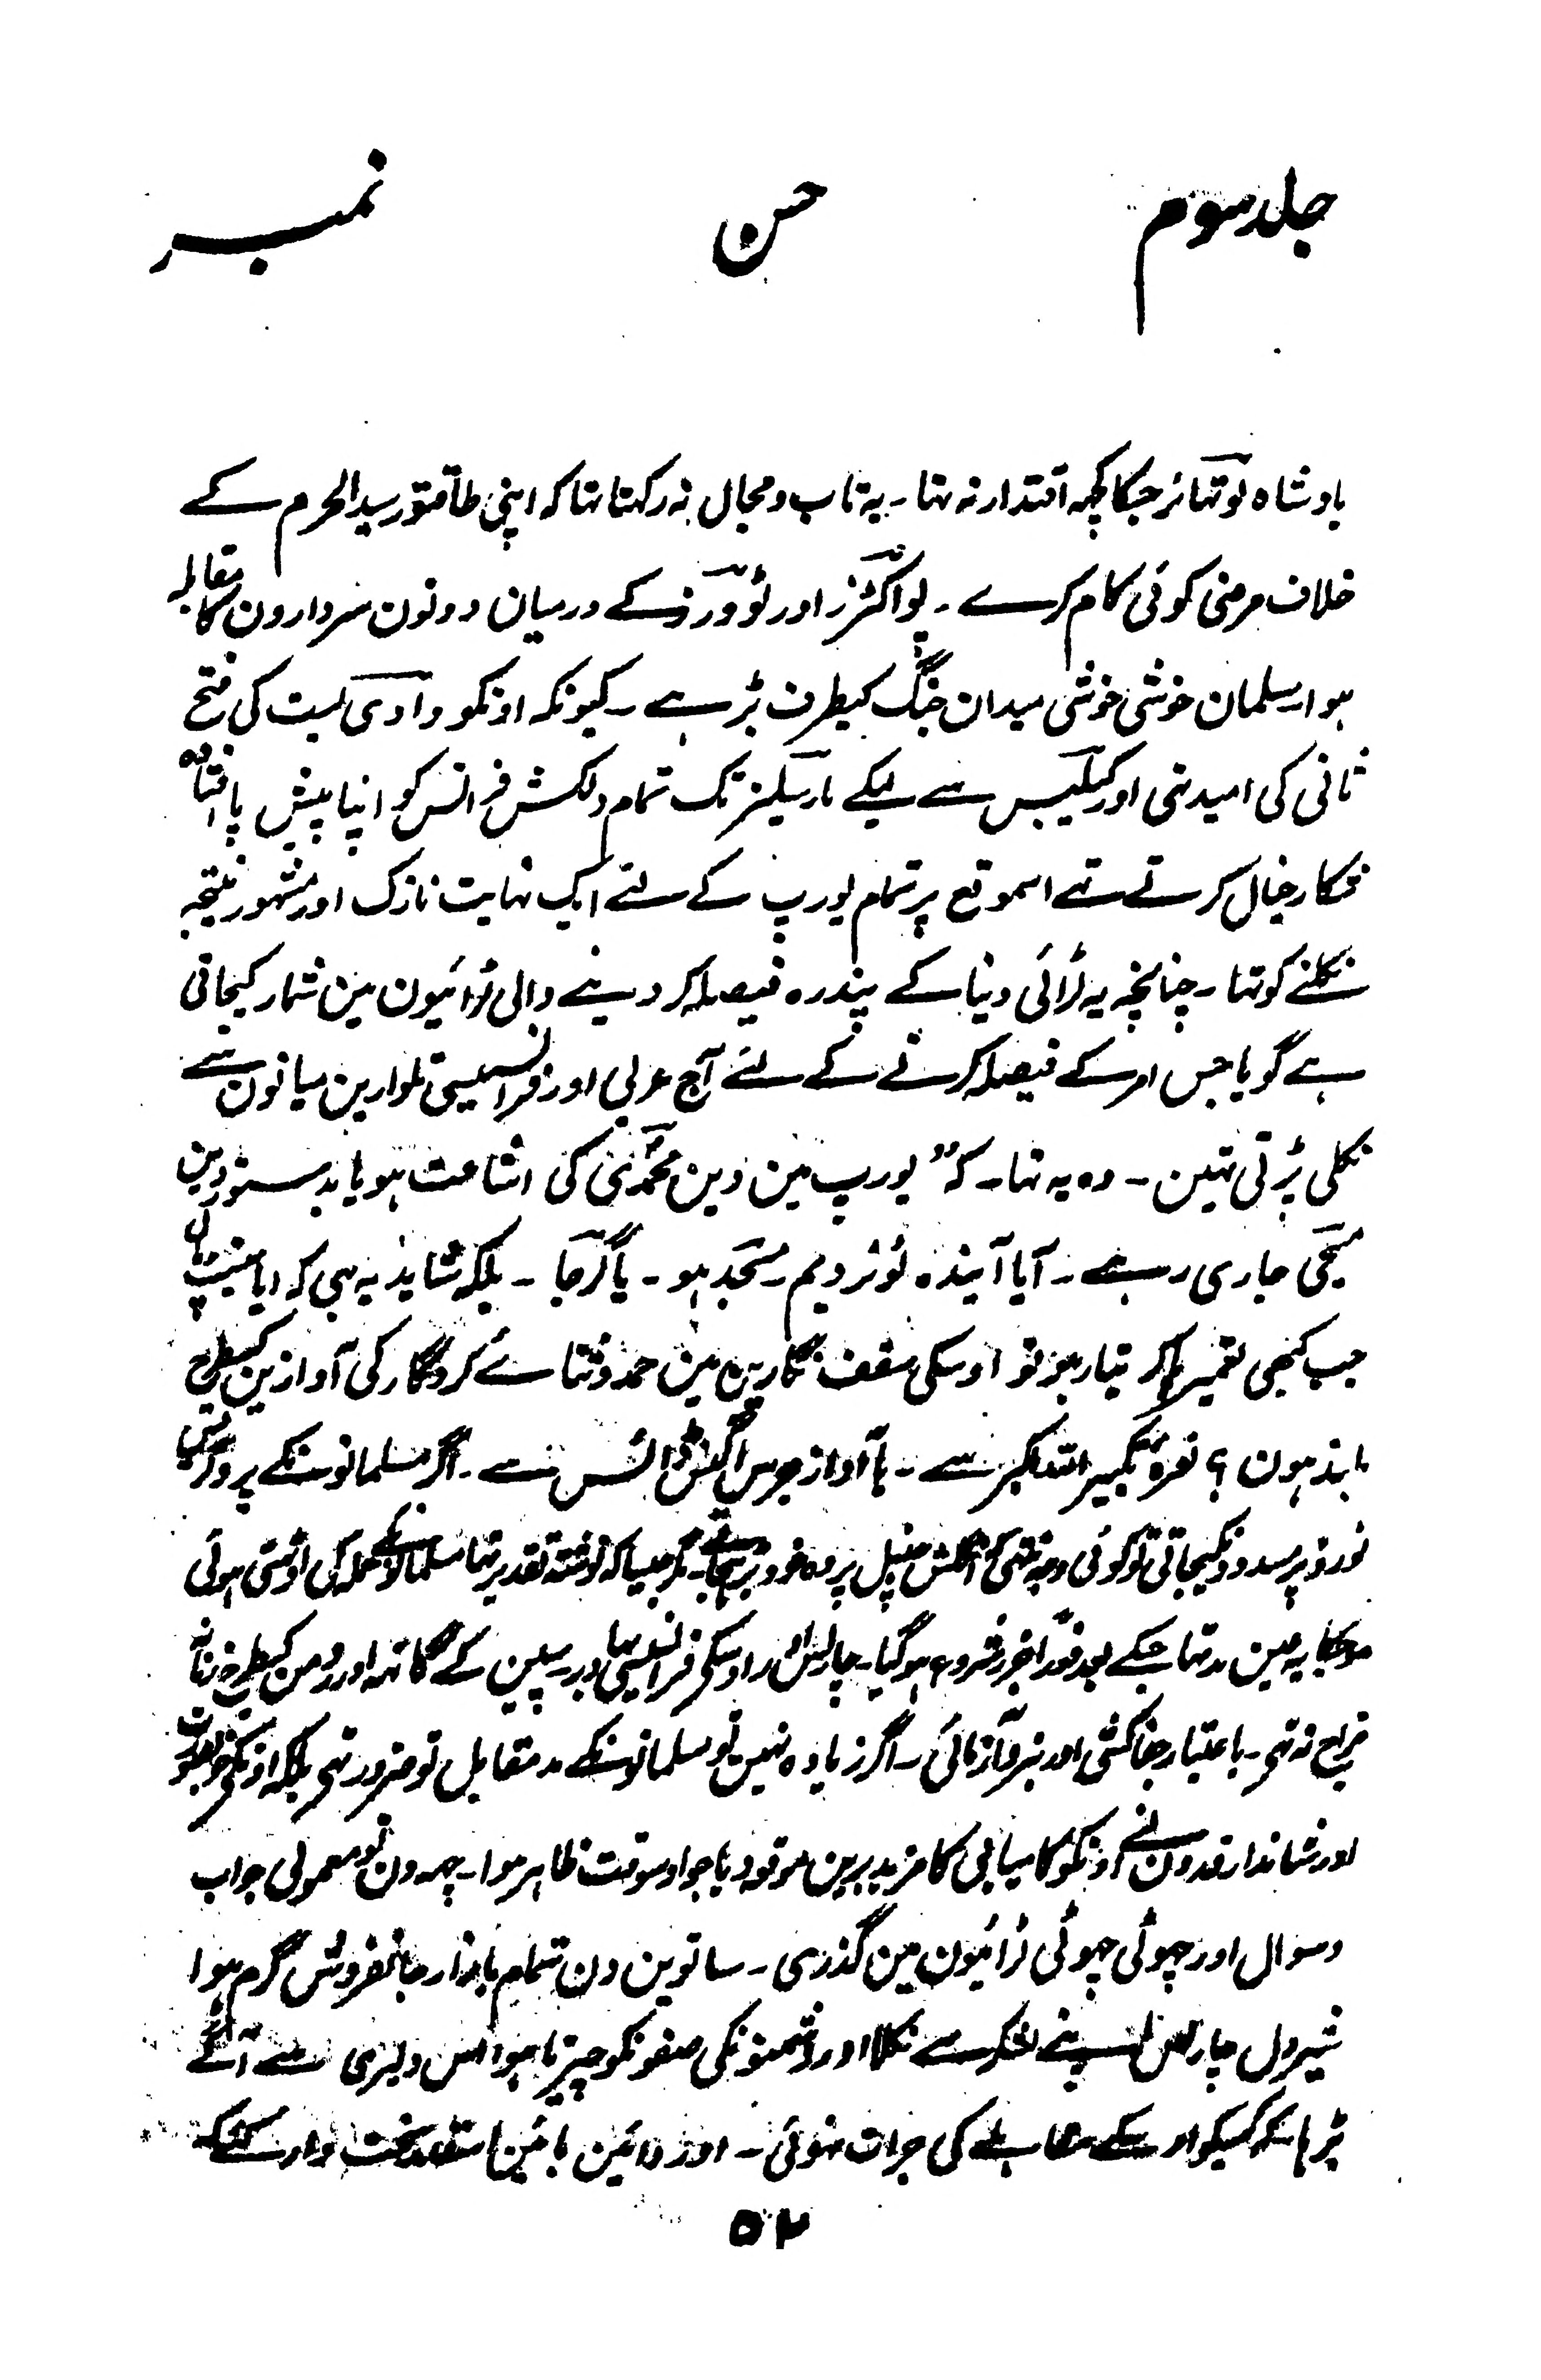 جلد سوم حسن نمبر
بادشاہ لوتھائر جسکا کچہہ اقتدار نہ تہا۔ یہ تاب و مجال نہ رکہتا تہا کہ اپنی طاقتور سید الحرم کے
خلاف مرضی کوئی کام کرے۔ پواکٹرز اور ٹوورز کے درمیان دونون سردارون کا مقابلہ
ہوا مسلمان خوشی خوشی میدان جنگ کیطرف بڑہے۔ کیونکہ اونکو وادی لیت کی فتح
ثانی کی امید تہی اور کیلیس سے لیکے مارسیلز تک تمام دلکش فرانس کو اپنا پیش پا افتادہ
شکار خیال کرتے تہے اسموقع پر تمام یورپ کے لئے ایک نہایت نازک اور مشہور نتیجہ
نکلنے کو تہا۔ چنانچہ یہ لڑائی دنیا کے پندرہ فیصلہ کر دینے والی لڑائیون مین شمار کیجاتی
ہے گویا جس امر کے فیصلہ کرنے کے لئے آج عربی اور فرانسیسی تلوارین میانون سے
نکلی پڑتی تہین۔ وہ یہ تہا۔ کہ ”یورپ مین دین محمدی کی اشاعت ہو یا بدستور دین
مسیحی جاری رہے۔ آیا آیندہ نوٹرڈیم۔ مسجد ہو۔ یا گرجا۔ بلکہ شاید یہ بہی کہ آیا سینٹ پال
جب کبھی تعمیر ہو کر تیار ہو تو اوسکی سقف نگارین مین حمد و ثنائے کردگار کی آوازین کسطرح
بلند ہون ؟ نعرۂ تکبیر اللہ اکبر سے۔ یا آواز جرس انگلش ماس سے۔ اگر مسلمانونکے پرواز کی
ٹورز پر سد و نکیجاتی تو کوئی وجہ نتہی کہ انگلش چینل پر وہ خود ٹہرجاتے۔ مگر جیسا کہ نوشتہ تقدیر تہا مسلمانونکے حملہ کی اوٹہتی ہوئی
موجکا یہ عین مد تہا جسکے بعد فوراً جزر شروع ہوگیا۔ چارلس اور اوسکی فرانسیسی سپاہ سپین کے گاتہہ اور رومن کیطرح زنانہ
مزاج نہ تہی۔ باعتبار جفاکشی اور نبرد آزمائی۔ اگر زیادہ نہین تو مسلمانونکے مد مقابل تو ضرور تہی بلکہ اونکی خوبصورت
اور شاندار قدون نے اونکو کامیابی کا مزید برین موقع دیا جو اوسوقت ظاہر ہوا۔ چہہ دن تو معمولی جواب
و سوال اور چہوٹی چہوٹی لڑائیون مین گذری۔ ساتوین دن تمام بازار جانفروش گرم ہوا
شیر دل چارلس اپنے لشکر سے نکلا اور دشمنونکی صفونکو چیرتا ہوا اس دلیری سے آگے
بڑہا کہ کسیکو اوسکے مقابلے کی جرات نہوئی۔ اور دائین بائین اسقدر سخت وار کئے کہ
۵۲